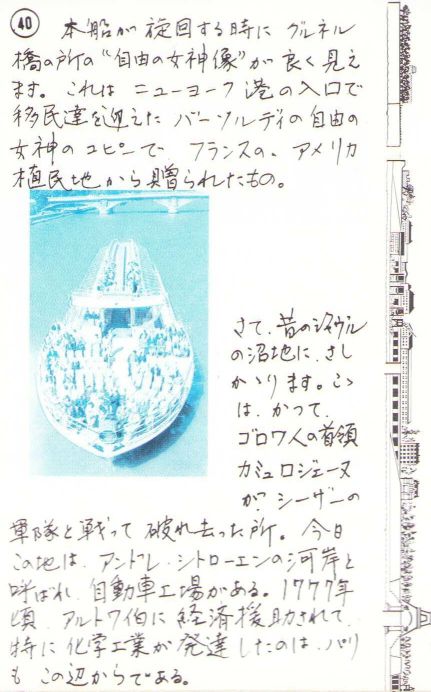 40
本船が旋回する時に グルネル
橋の所の“自由の女神像”が良く見え
ます。これは ニューヨーク港の入口で
移民達を迎えた バーソルディの自由の
女神のコピーで フランスの、アメリカ
植民地から贈られたもの。
さて、昔の
の沼地に、さし
かゝります。こゝ
は、かつて、
ゴロワ人の首領
カミュロジェーヌ
が、シーザーの
軍隊と戦って 破れ去った所。今日
この地は、アンドレ・シトローエンの河岸と
呼ばれ、自動車工場がある。1777年
頃、アルトワ伯に 経済援助されて、
特に化学工業が発達したのは、パリ
も この辺からである。